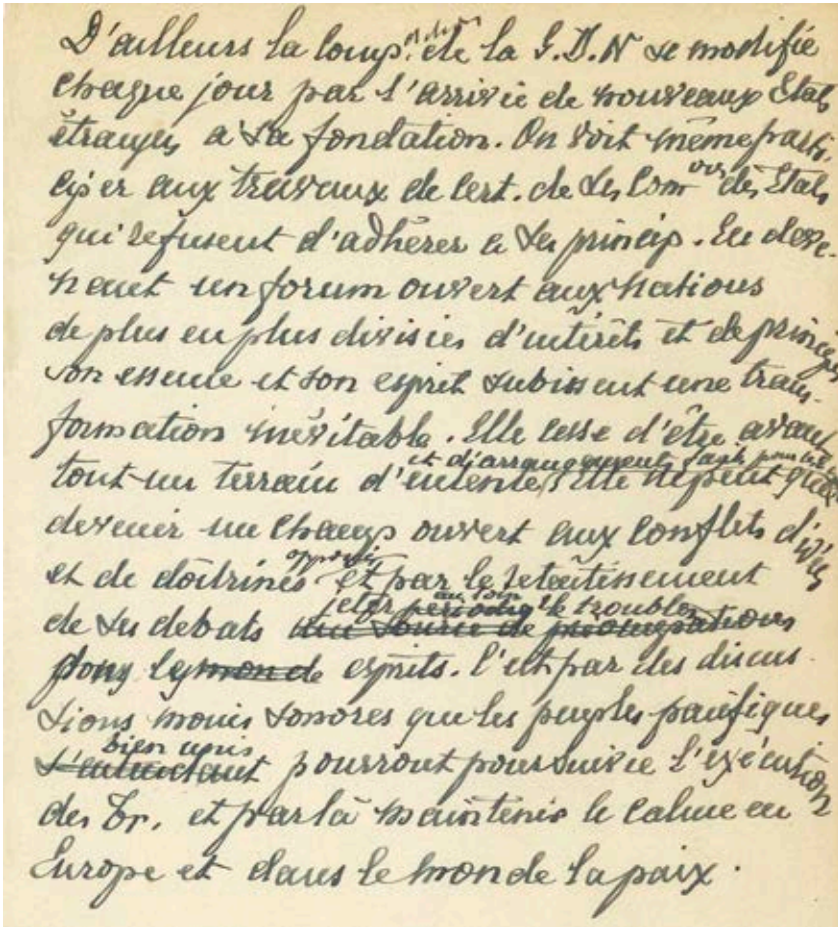 D'ailleurs la comp. de la S.D.N se modifie
chaque jour par l'arrivée de nouveaux Etats
étrangers à sa fondation. On voit même parti-
ciper aux travaux de cert. de ses Comons des Etats
qui refusent d'adhérer à ses princip. En deve-
nant un forum ouvert aux nations
de plus en plus divisées d'intérêts et de principes
son essence et son esprit subissent une trans-
formation inévitable. Elle cesse d'être avant
et d'arrangements
tout un terrain d'entente, Elle ne peut que
devenir un champ ouvert aux conflits d'idées
opposées
et de doctrines et par le retentissement
au loin
jeter périodiq. le trouble
de ses débats une source de préoccupations
dans les monde esprits. C'est par des discus-
sions moins sonores que les peuples pacifiques
bien unis
s'entendant pourront poursuivre l'exécution
des Tr. et par là maintenir le calme en
Europe et dans le monde la paix.